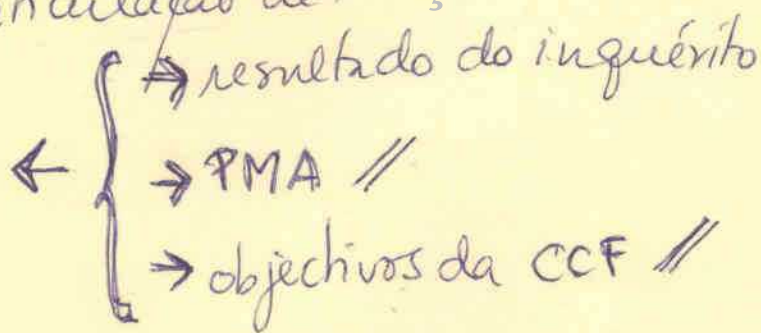 → resultado do inquérito
← { → PMA //
→ objectivos da CCF //